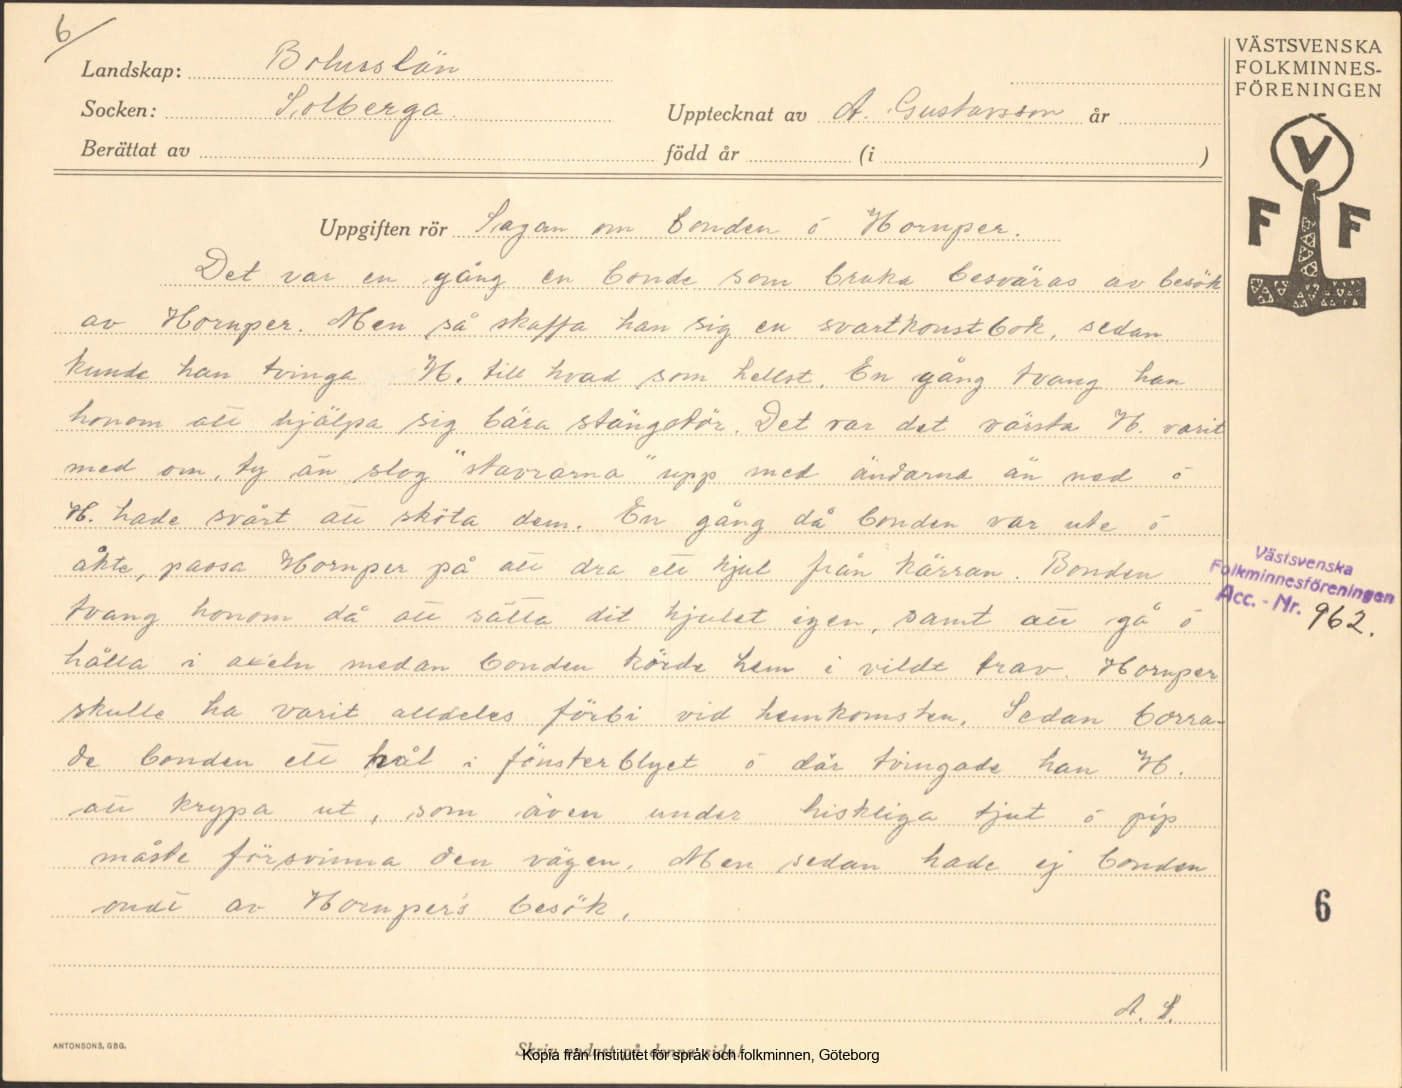 6
Landskap: Bohuslän
Socken: Solberga.
Upptecknat av A. Gustavsson år
Berättat av
född år (i )
Uppgiften rör Sagan om bonden ó Hornper.
Det var en gång en bonde som bruka besväras av besök
av Hornper. Men så skaffa han sig en svartkonstbok, sedan
kunde han tvinga H. till hvad som hellst. En gång tvang han
honom att hjälpa sig bära stängstör. Det var det värsta H. varit
med om, ty än slog "stavrarna" upp med ändarna än ned ó
H. hade svårt att sköta dem. En gång då bonden var ute ó
åkte, passa Hornper på att dra ett hjul från kärran. Bonden
tvang honom då att sätta dit hjulet igen, samt att gå ó
hålla i axeln medan bonden körde hem i vildt trav. Hornper
skulle ha varit alldeles förbi vid hemkomsten. Sedan borra-
de bonden ett hål i fönsterblyet ó där tvingade han H.
att krypa ut, som även under hiskliga tjut ó pip
måste försvinna den vägen. Men sedan hade ej bonden
ondt av Hornper's besök.
A. S.
ANTONSONS, GBG.
Skriv endast på denna sida!
Kopia från Institutet för språk och folkminnen, Göteborg
VÄSTSVENSKA
FOLKMINNES-
FÖRENINGEN
V
F F
Västsvenska
Folkminnesföreningen
Acc. - Nr. 962.
6